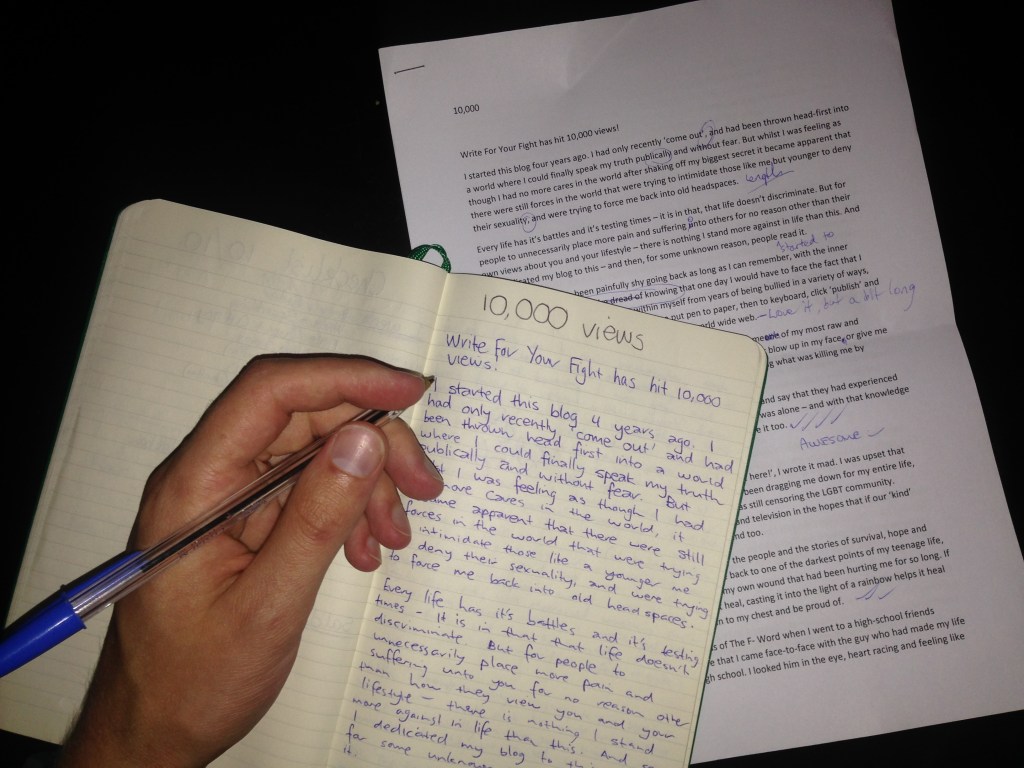 10,000 views
Write For Your Fight has hit 10,000
views!
I started this blog 4 years ago. I
had only recently 'come out' and had
been thrown head first into a would
where I could finally speak my truth
publically and without fear. But
I was feeling as though I had
more cares in the world, it
apparent that there were still
forces in the world that were trying
intimidate those like a younger me
deny their sexuality, and were trying
to force me back into old headspaces.
Every life has it's battles, and it's testing
times - It is in that that life doesn't
discriminate. But for people to
unnecessarily place more pain and
suffering unto you for no reason other
than how they view you and your
lifestyle - there is nothing I stand
more against in life than this. And
I dedicated my blog to
for some unknown
10,000
Write For Your Fight has hit 10,000 views!
I started this blog four years ago. I had only recently 'come out', and had been thrown head-first into
a world where I could finally speak my truth publically and without fear. But whilst I was feeling as
though I had no more cares in the world after shaking off my biggest secret it became apparent that
there were still forces in the world that were trying to intimidate those like me but younger to deny
their sexuality, and were trying to force me back into old headspaces.
Every life has it's battles and it's testing times – it is in that, that life doesn't discriminate. But for
people to unnecessarily place more pain and suffering into others for no reason other than their
own views about you and your lifestyle – there is nothing I stand more against in life than this. And
my blog to this – and then, for some unknown reason, people read it.
started to
been painfully shy going back as long as I can remember, with the inner
dread of knowing that one day I would have to face the fact that I
within myself from years of being bullied in a variety of ways,
put pen to paper, then to keyboard, click 'publish' and
world wide web. – Love it, but a bit long
of my most raw and
blow up in my face, or give me
what was killing me by
and say that they had experienced
was alone – and with that knowledge
it too.
Awesome
here!', I wrote it mad. I was upset that
been dragging me down for my entire life,
still censoring the LGBT community.
and television in the hopes that if our 'kind'
too.
the people and the stories of survival, hope and
back to one of the darkest points of my teenage life,
my own wound that had been hurting me for so long. If
heal, casting it into the light of a rainbow helps it heal
to my chest and be proud of.
of The F- Word when I went to a high-school friends
that I came face-to-face with the guy who had made my life
school. I looked him in the eye, heart racing and feeling like